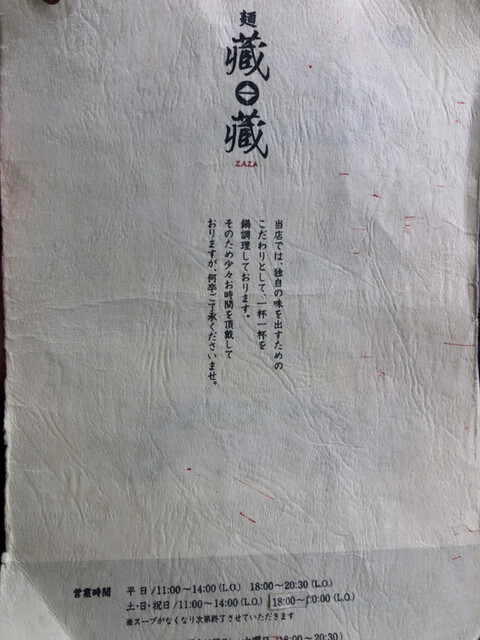 麺
藏
藏
ZAZA
当店では、独自の味を出すための
こだわりとして、一杯一杯を
鍋調理しております。
そのため少々お時間を頂戴して
おりますが、何卒ご了承くださいませ。
営業時間 平日/11:00～14:00(L.O.) 18:00～20:30(L.O.)
土・日・祝日/11:00～14:00(L.O.) 18:00～ 0:00(L.O.)
※スープがなくなり次第終了させていただきます